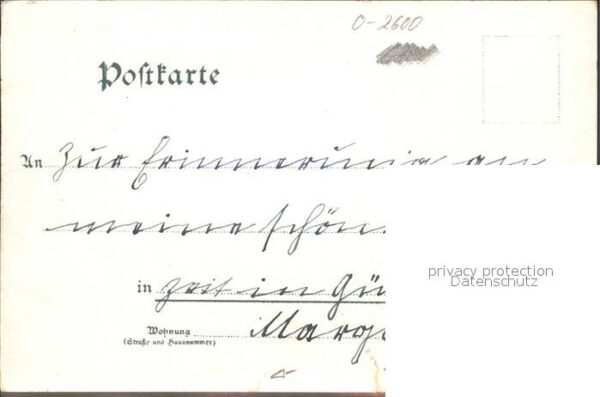 O-2600
Postkarte
An Zur Erinnerung an
meine schön
in Zeit in Gü
Wohnung
(Straße und Hausnummer)
Marg
privacy protection
Datenschutz